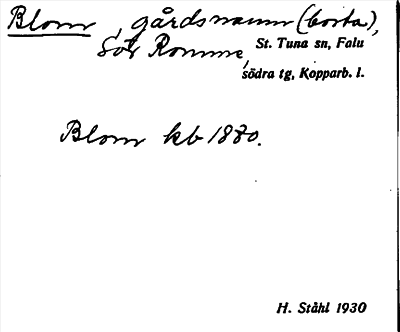 Blom, gårdsnamn (borta),
Romme, St. Tuna sn, Falu
södra tg, Kopparb. l.
Blom kb 1880.
H. Ståhl 1930